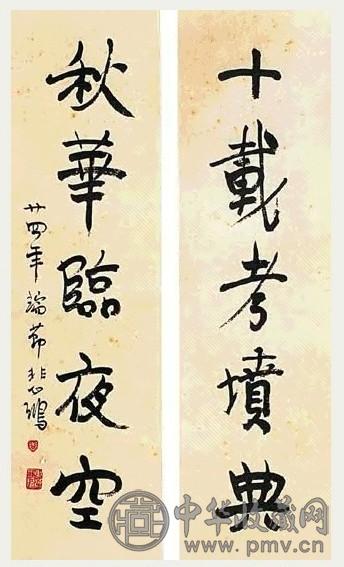 十載考墳典
秋華臨夜空
廿四年端節悲鴻
中华收藏网
www.pmv.cn